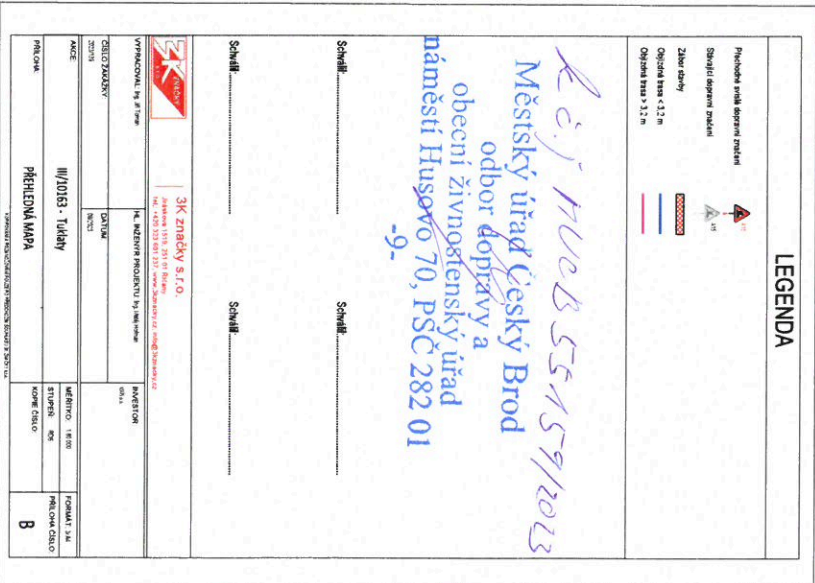 LEGENDA
Přechodné svislé dopravní značení
A15
Stávající dopravní značení
A15
Zábor stavby
Objízdná trasa < 3,2 m
Objízdná trasa > 3,2 m
k č.j MUCB 55159/2023
Městský úřad Český Brod
odbor dopravy a
obecní živnostenský úřad
náměstí Husovo 70, PSČ 282 01
-9-
Schválil:
Schválil:
Schválil:
Schválil:
3K ZNAČKY
3K značky s.r.o.
VYPRACOVAL:
HL. INŽENÝR PROJEKTU:
INVESTOR
ČÍSLO ZAKÁZKY
DATUM
AKCE:
III/10163 - Tuklaty
MĚŘÍTKO:
FORMÁT:
STUPEŇ:
PŘÍLOHA ČÍSLO
PŘÍLOHA:
PŘEHLEDNÁ MAPA
KOPIE ČÍSLO:
B